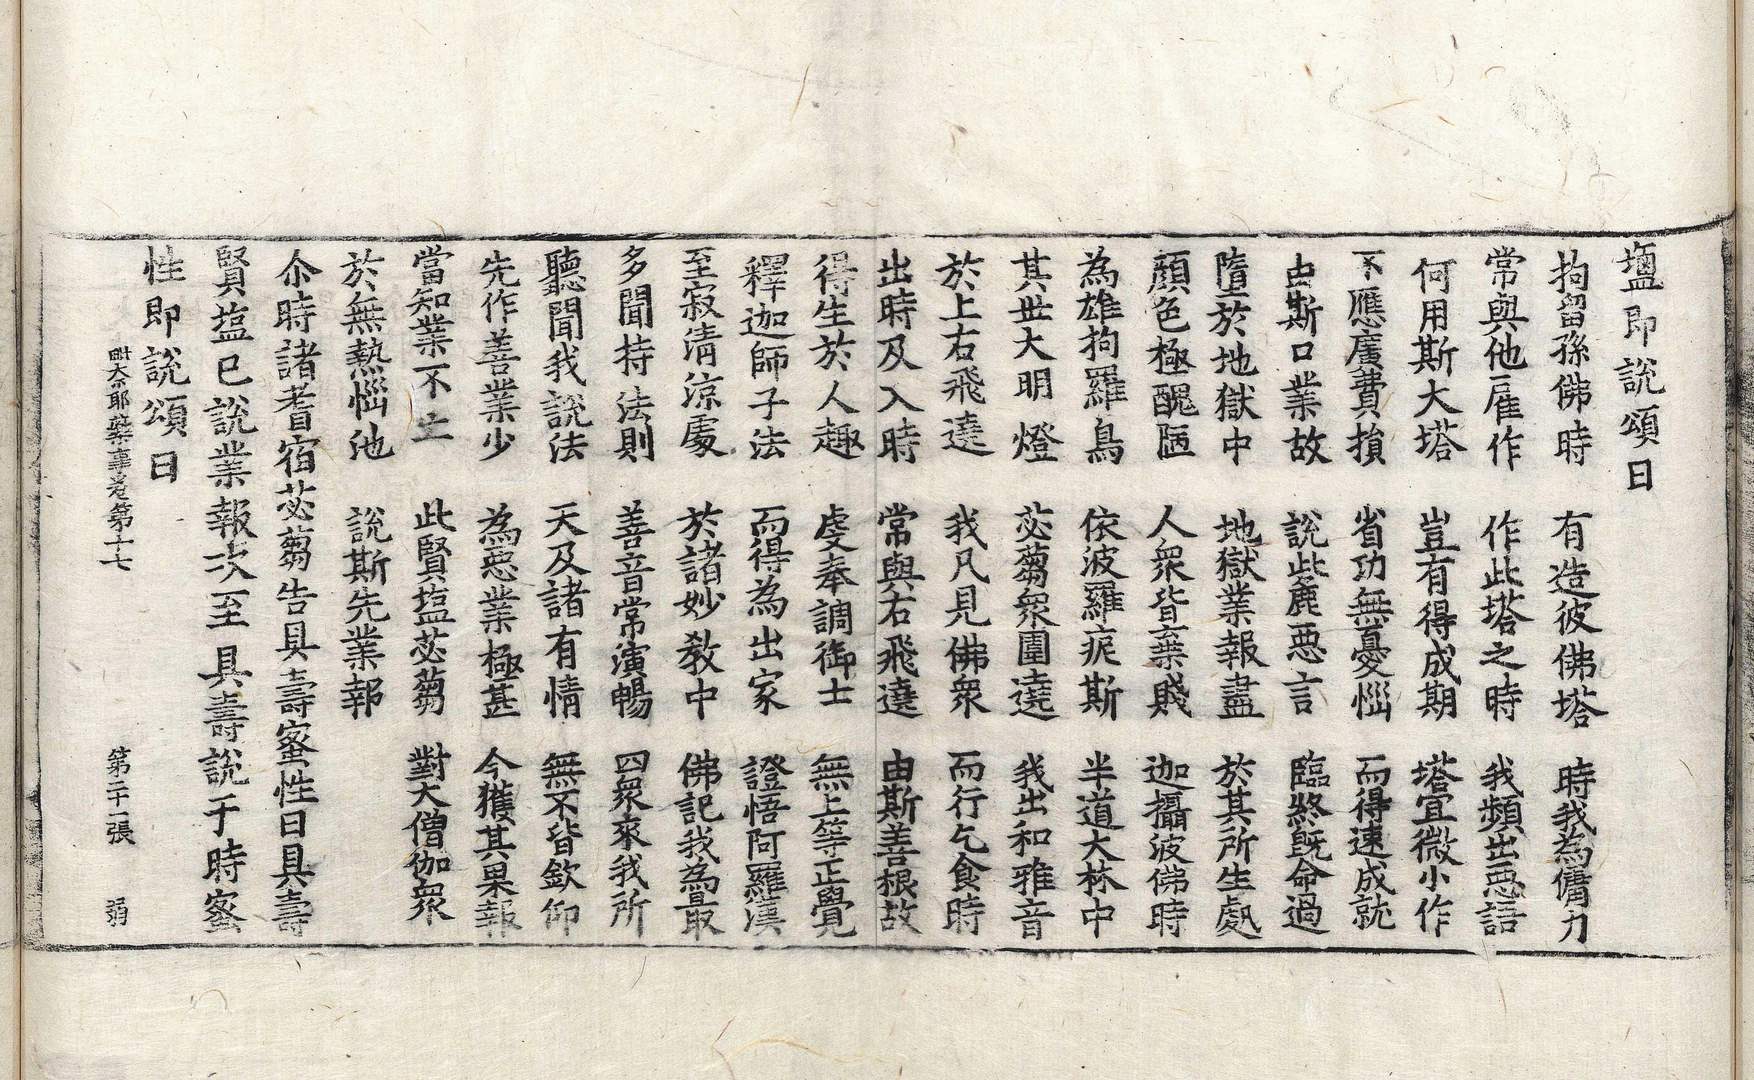 塩即說頌曰
拘留孫佛時 有造彼佛塔 時我為傭力
常與他雇作 作此塔之時 我頻出惡語
何用斯大塔 豈有得成期 塔宜微小作
不應廣費損 省功無憂惱 而得速成就
由斯口業故 說此麁惡言 臨終旣命過
墮於地獄中 地獄業報盡 於其所生處
顔色極醜陋 人衆皆棄賤 迦攝波佛時
為雄拘羅鳥 依波羅痆斯 半道大林中
其世大明燈 苾蒭衆圍遶 我出和雅音
於上右飛遶 我凡見佛衆 而行乞食時
出時及入時 常與右飛遶 由斯善根故
得生於人趣 虔奉調御士 無上等正覺
釋迦師子法 而得為出家 證悟阿羅漢
至寂淸涼處 於諸妙教中 佛記我為最
多聞持法則 善音常演暢 四衆來我所
聽聞我說法 天及諸有情 無不皆欽仰
先作善業少 為惡業極甚 今獲其果報
當知業不亡 此賢塩苾蒭 對大僧伽衆
於無熱惱池 說斯先業報
尒時諸耆宿苾蒭告具壽蜜性曰具壽
賢塩已說業報次至具壽說于時蜜
性即說頌曰
毗奈耶藥事卷第十七 第二十一張 弱